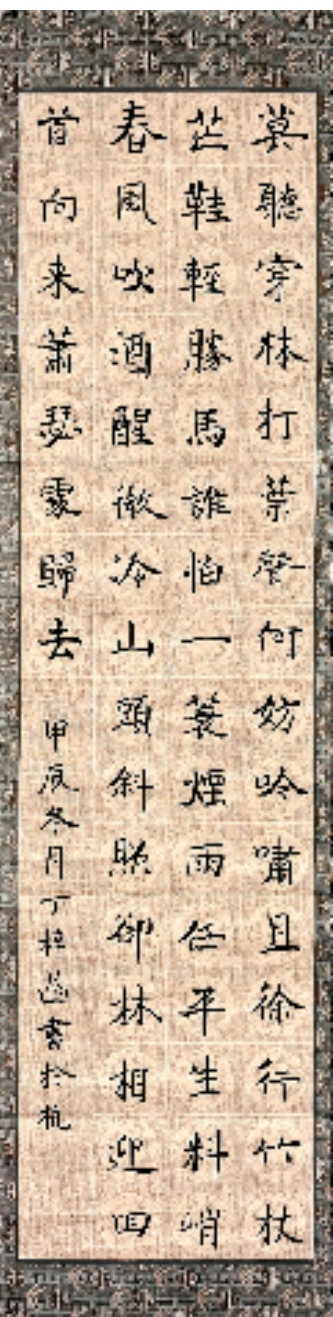 莫聽穿林打葉聲何妨吟嘯且徐行竹杖
芒鞋輕勝馬誰怕一蓑煙雨任平生料峭
春風吹酒醒微冷山頭斜照卻林相迎回
首向来蕭瑟處歸去
甲辰冬月丁書於杭